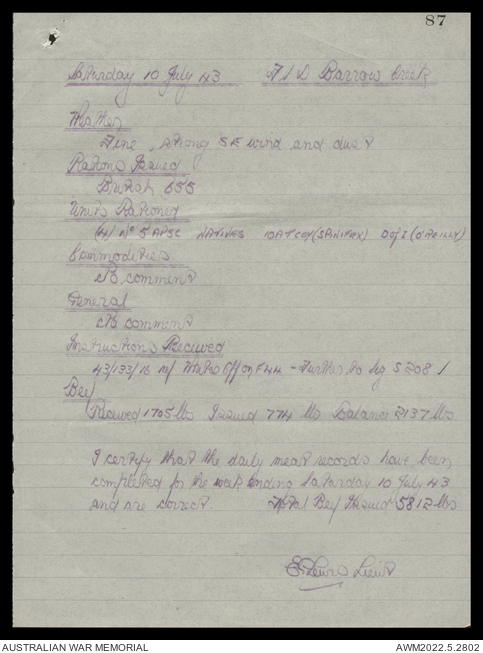 87
Saturday 10 July 43 FSD Barrow Creek
Weather
Fine, strong SE wind and dust
Rations Issued
British 655
Units Rationed
(4) No 5 APSC NATIVES 10ATCOY (SPINIFEX) (O'REILLY)
Commodities
No comment
General
No comment
Instructions Received
43/133/16 - Further to Sig S208
Beef
Received 1705 lbs Issued 774 lbs Balance 2137 lbs
I certify that the daily meat records have been
completed for the week ending Saturday 10 July 43
and are correct. Total Beef Issued 5812 lbs
Lieut
AUSTRALIAN WAR MEMORIAL AWM2022.5.2802